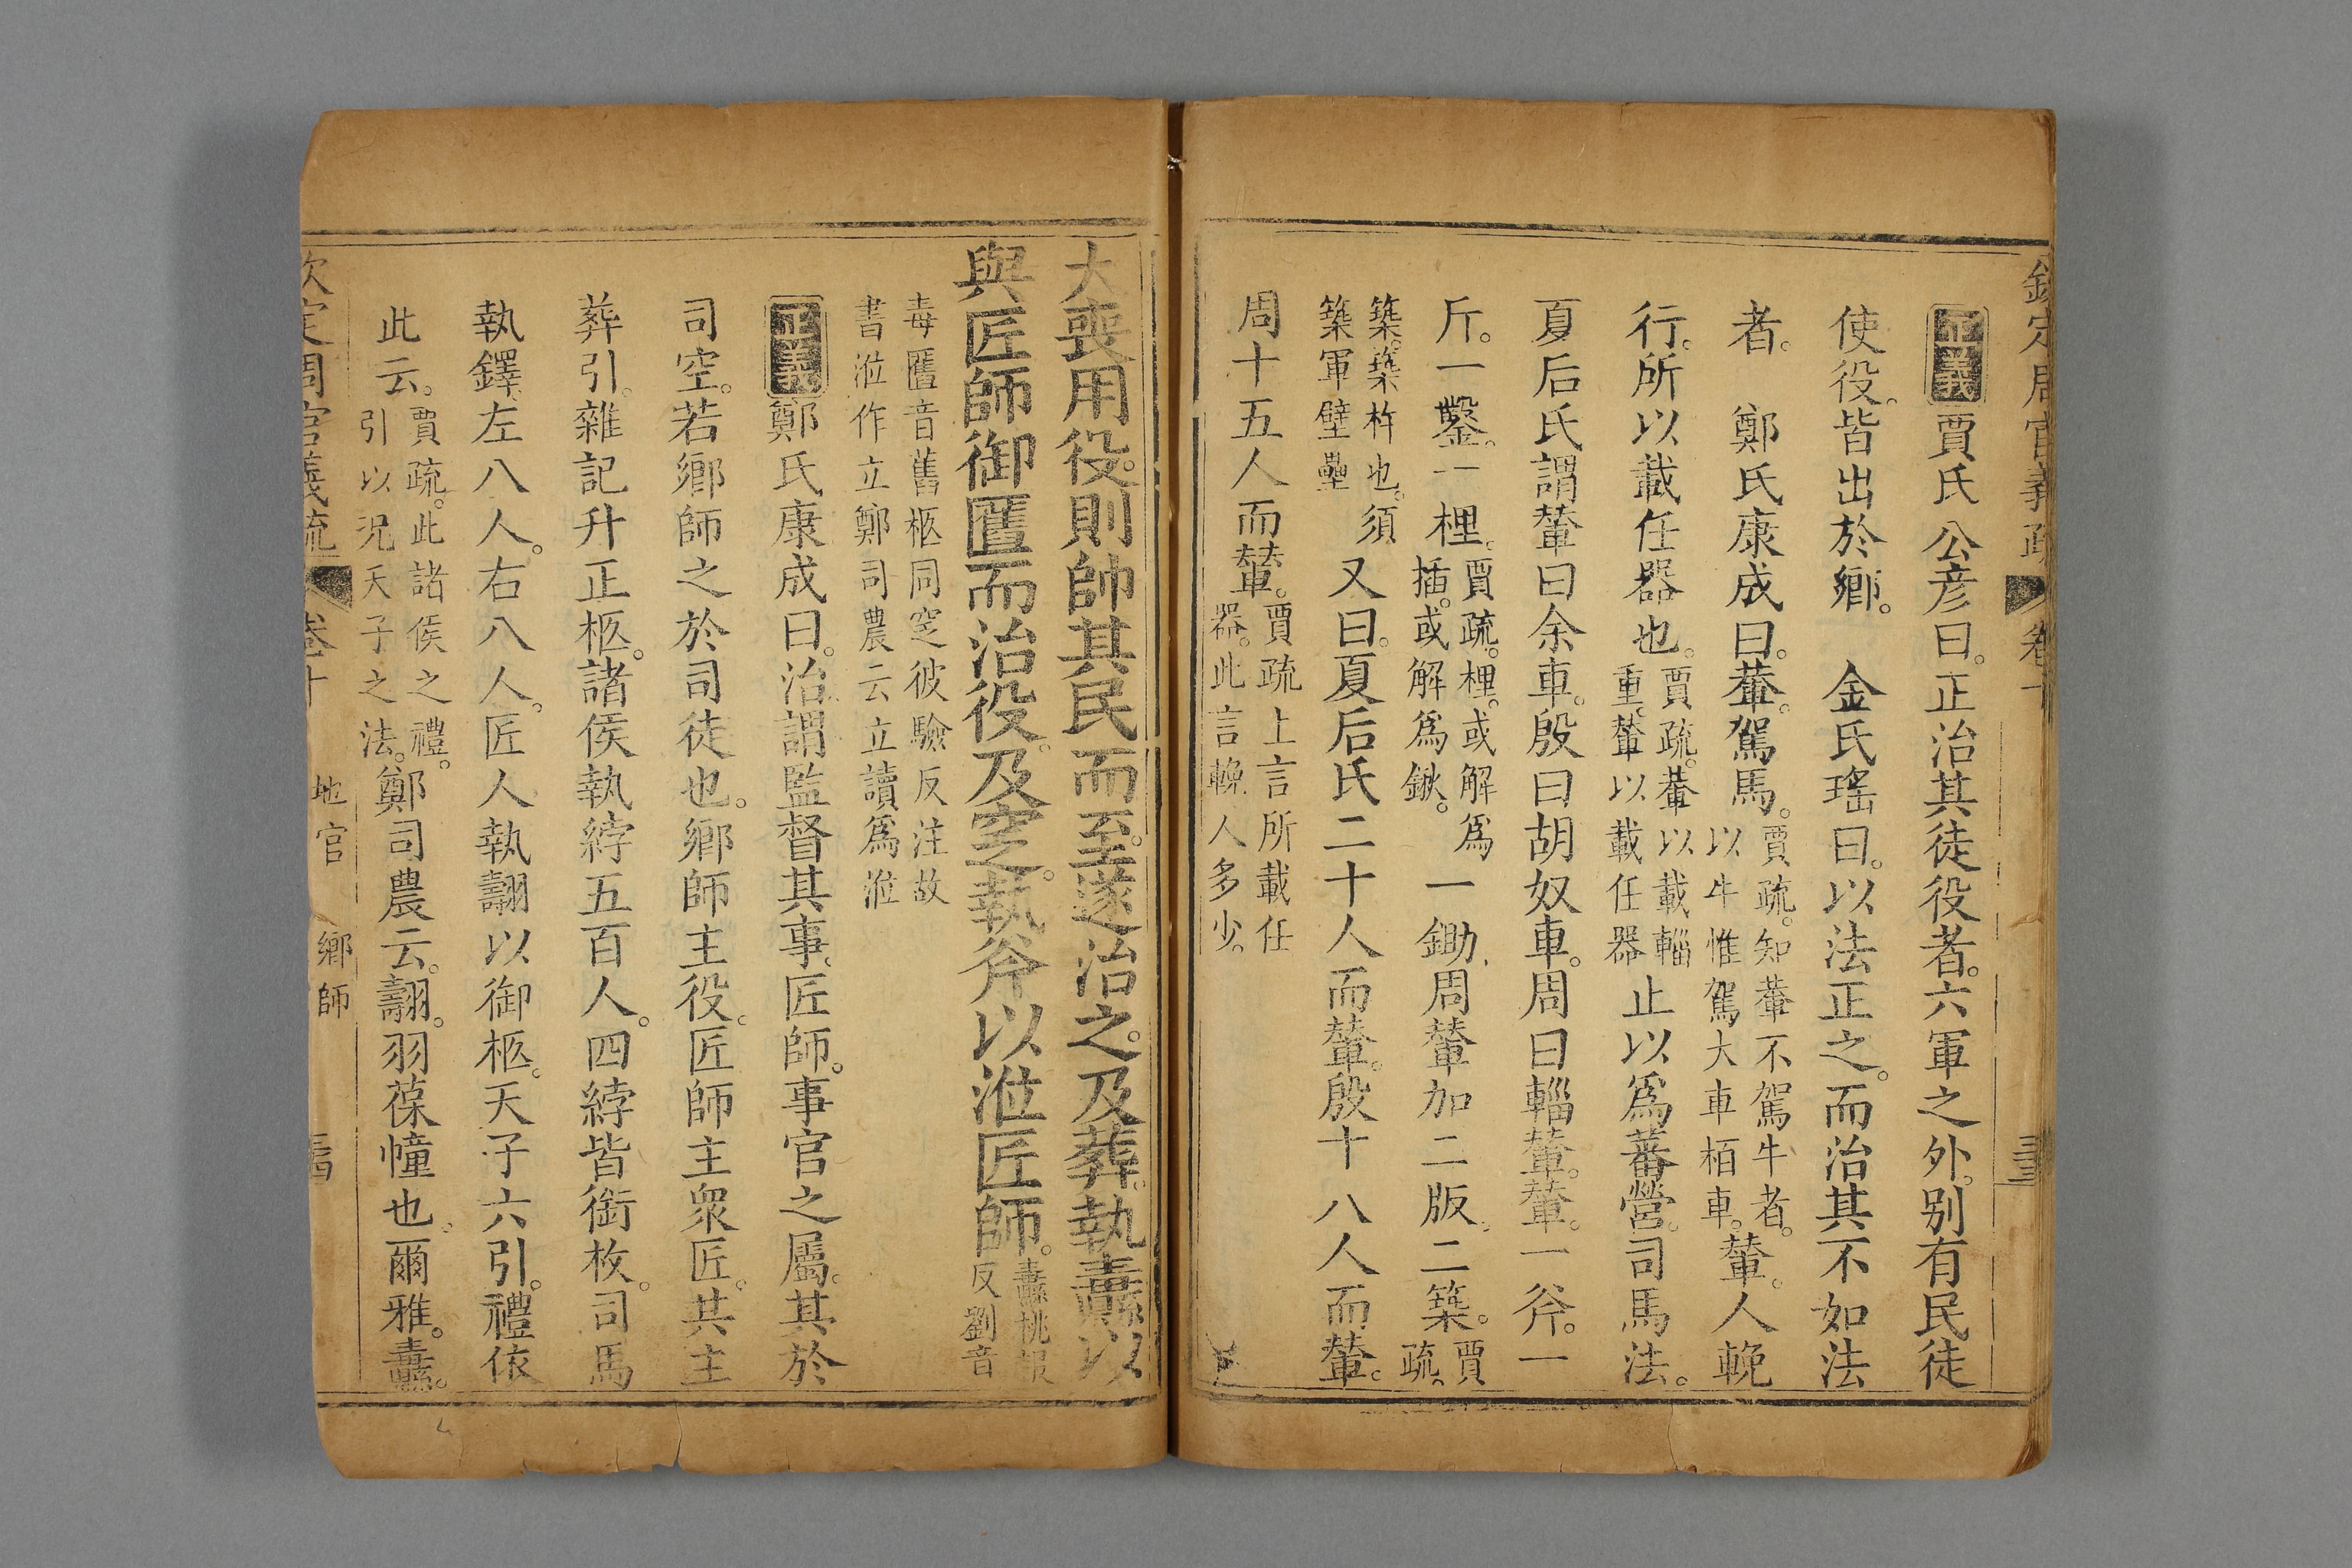 欽定周官義疏 卷十
正義賈氏公彦曰。正治其徒役者。六軍之外。别有民徒
使役。皆出於鄉。 金氏瑤曰。以法正之。而治其不如法
者。 鄭氏康成曰。輂。駕馬。賈疏。知輂不駕牛者。以牛惟駕大車柏車。輦。人輓
行。所以載任器也。賈疏。輂以載輜重。輦以載任器止以為蕃營。司馬法。
夏后氏謂輦曰余車。殷曰胡奴車。周曰輜輦。輦。一斧。一
斤。一鑿。一梩。賈疏。梩。或解為插。或解為鍬。一鋤。周輦加二版。二築。賈疏。
築。築杵也。須築軍壁壘又曰。夏后氏二十人而輦。殷十八人而輦。
周十五人而輦。賈疏上言所載任器。此言輓人多少。
大喪用役。則帥其民而至。遂治之。及葬。執纛以
與匠師御匶而治役。及窆。執斧以涖匠師。纛桃報反劉音
毒匶音舊柩同窆彼驗反注故書涖作立鄭司農云立讀爲涖
正義鄭氏康成曰。治。謂監督其事。匠師。事官之屬。其於
司空。若鄉師之於司徒也。鄉師主役。匠師主眾匠。共主
葬引。雜記升正柩。諸侯執綍五百人。四綍皆銜枚。司馬
執鐸。左八人。右八人。匠人執翿以御柩。天子六引。禮依
此云。賈疏。此諸侯之禮。引以況天子之法。鄭司農云。翿。羽葆幢也。爾雅。纛。
欽定周官義疏 卷十 地官 鄉師